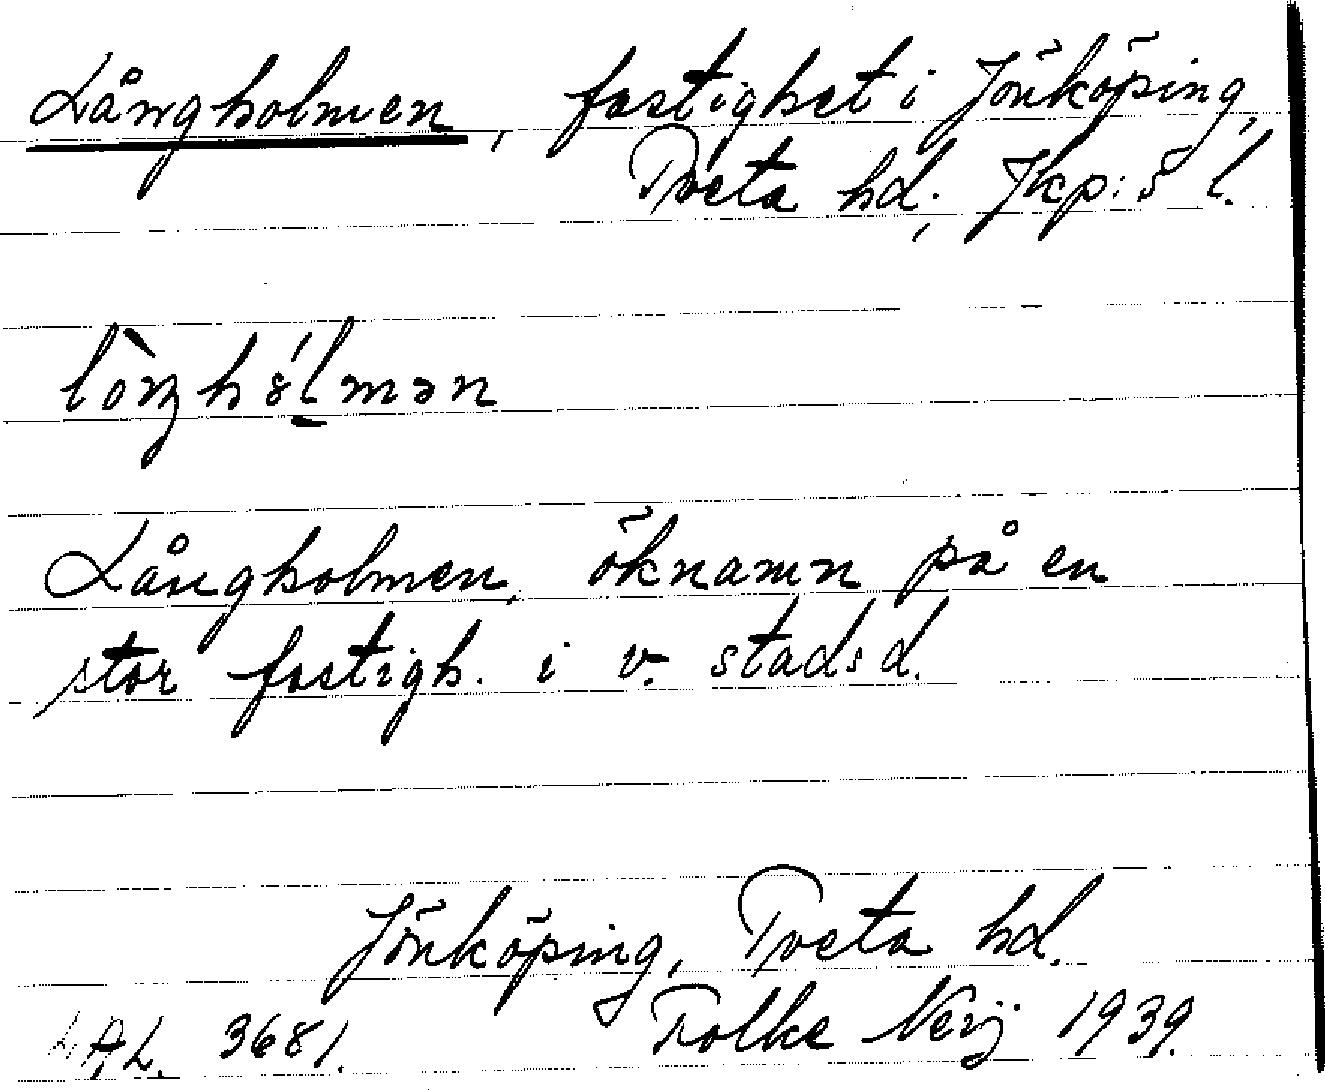 Långholmen, fastighet i Jönköping,
Tveta hd, Jkp:s l.
Långholmen, öknamn på en
stor fastigh. i v. stadsd.
Jönköping, Tveta hd.
L.A.L. 3681. Folke Neij 1939.